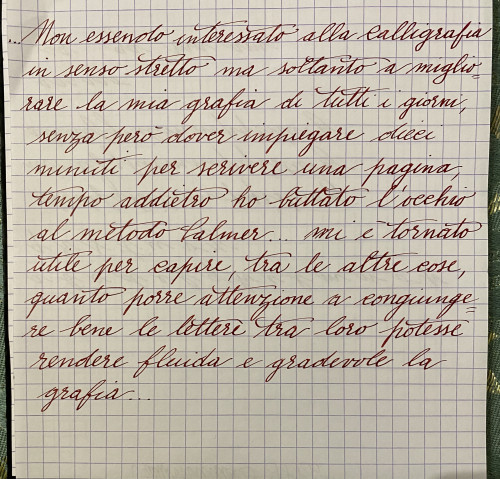 ...Non essendo interessato alla calligrafia
in senso stretto ma soltanto a miglio=
rare la mia grafia di tutti i giorni,
senza però dover impiegare dieci
minuti per scrivere una pagina,
tempo addietro ho buttato l'occhio
al metodo Palmer... mi è tornato
utile per capire, tra le altre cose,
quanto porre attenzione a congiunge=
re bene le lettere tra loro potesse
rendere fluida e gradevole la
grafia...